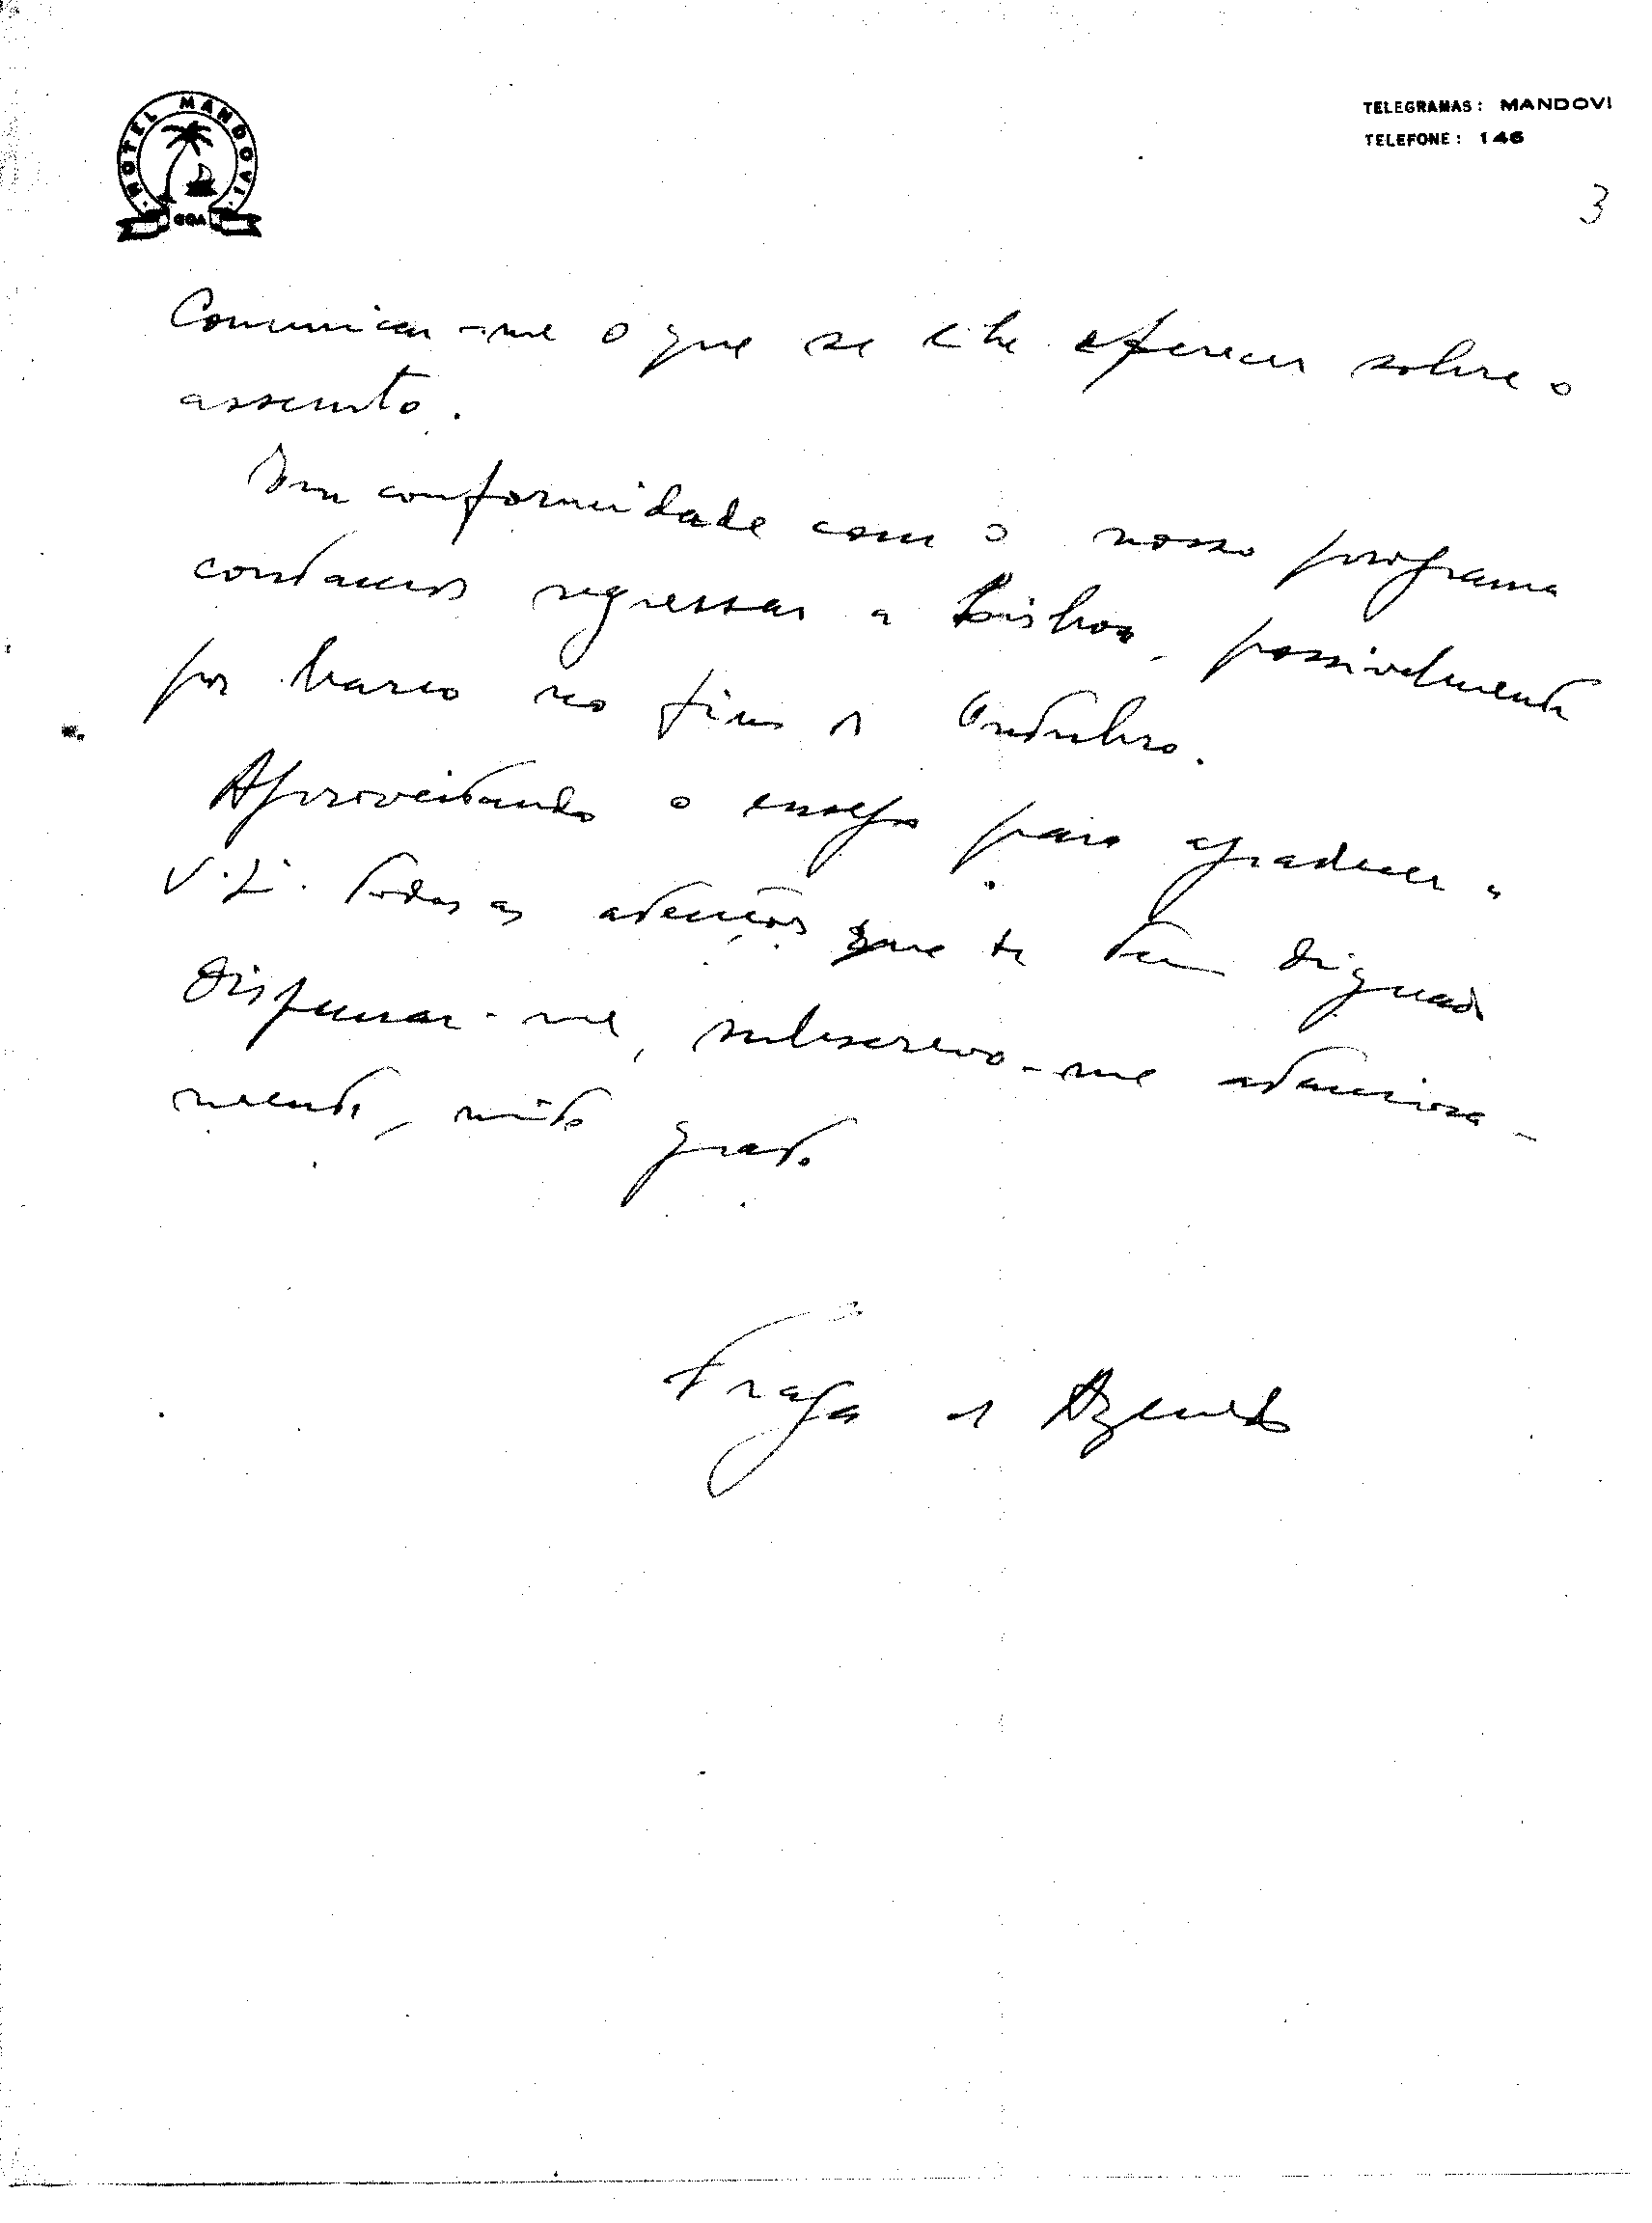 HOTEL MANDOVI
GOA
TELEGRAMAS: MANDOVI
TELEFONE: 146
3
Comunicar-me o que se lhe oferecer sobre o
assunto.
Em conformidade com o nosso programa
contamos regressar a Lisboa, possivelmente
por barco no fim de Outubro.
Aproveitando o ensejo para agradecer a
V. Ex. todas as atenções que se tem dignado
dispensar-me, subscrevo-me atenciosa-
mente, muito grato
Fraga de Azevedo